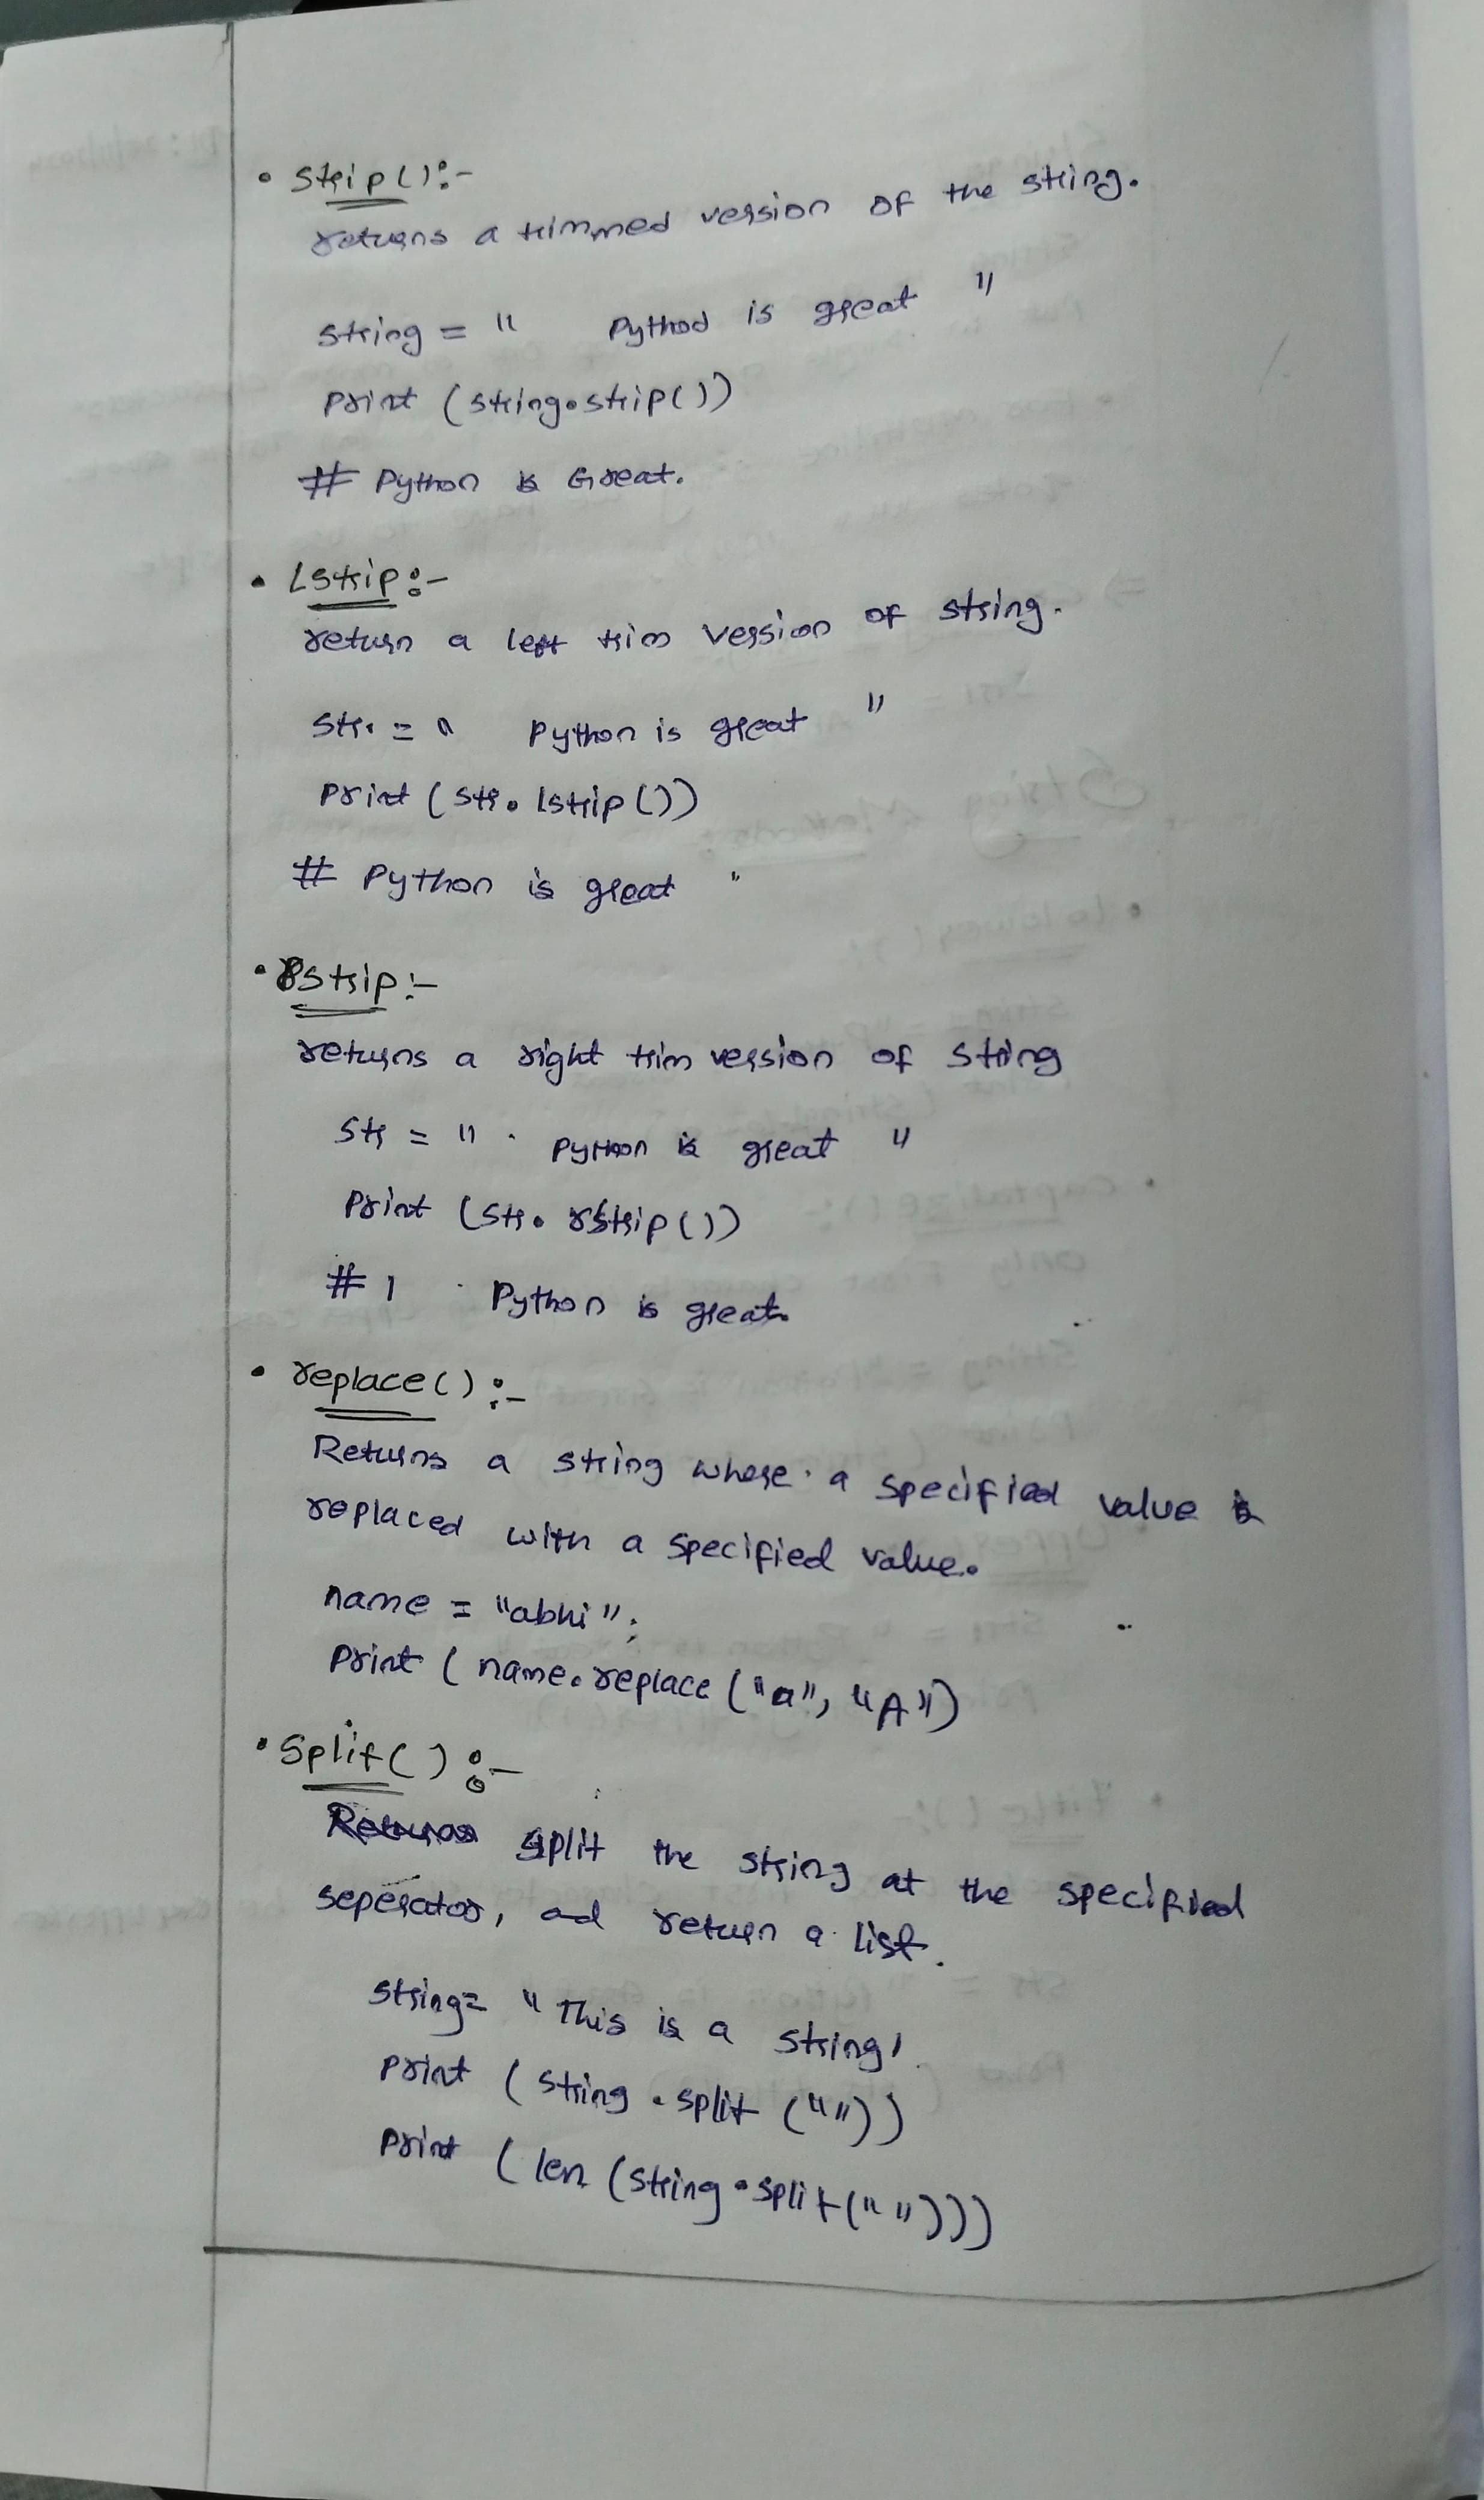 • strip():-
returns a trimmed version of the string.
string = "    Python is great    "
print (string.strip())
# Python is Great.
• Lstrip:-
return a left trim version of string.
str = "    Python is great    "
print (str.lstrip())
# Python is great    "
• Rstrip:-
returns a right trim version of string
str = "    Python is great    "
print (str.rstrip())
# 1    Python is great.
• replace():-
Returns a string where a specified value is
replaced with a specified value.
name = "abhi";
print (name.replace("a", "A")
• Split():-
split the string at the specified
seperator, ad return a list.
string= "This is a string'
print (string.split (" "))
print (len (string.split(" ")))